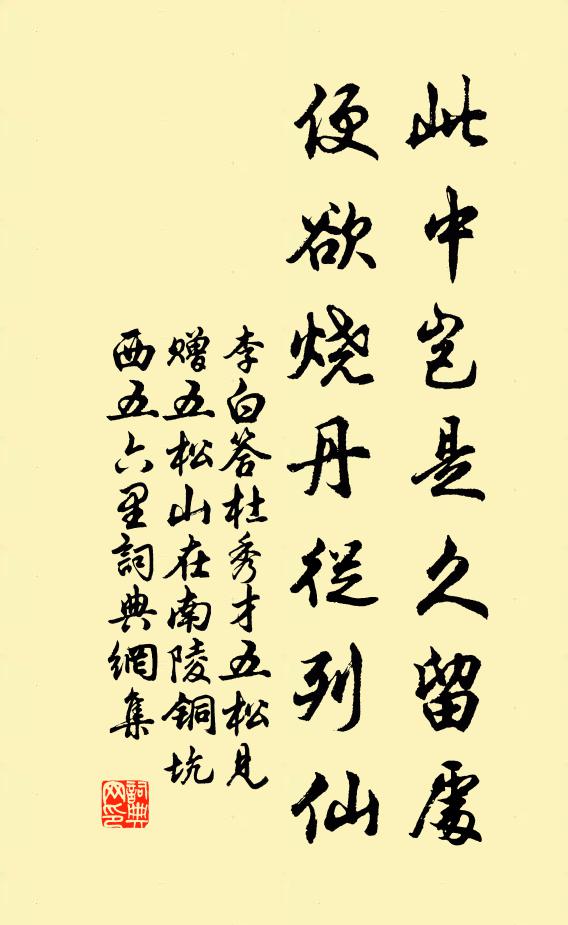 此中岂是久留處
便欲烧丹從列仙
李白答杜秀才五松見
赠五松山在南陵铜坑
西五六里詞典網集
詞典
网印